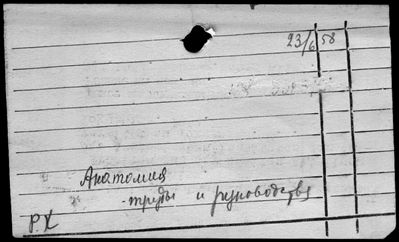 23/6 58
Анатомия
- труды и руководства
РХ